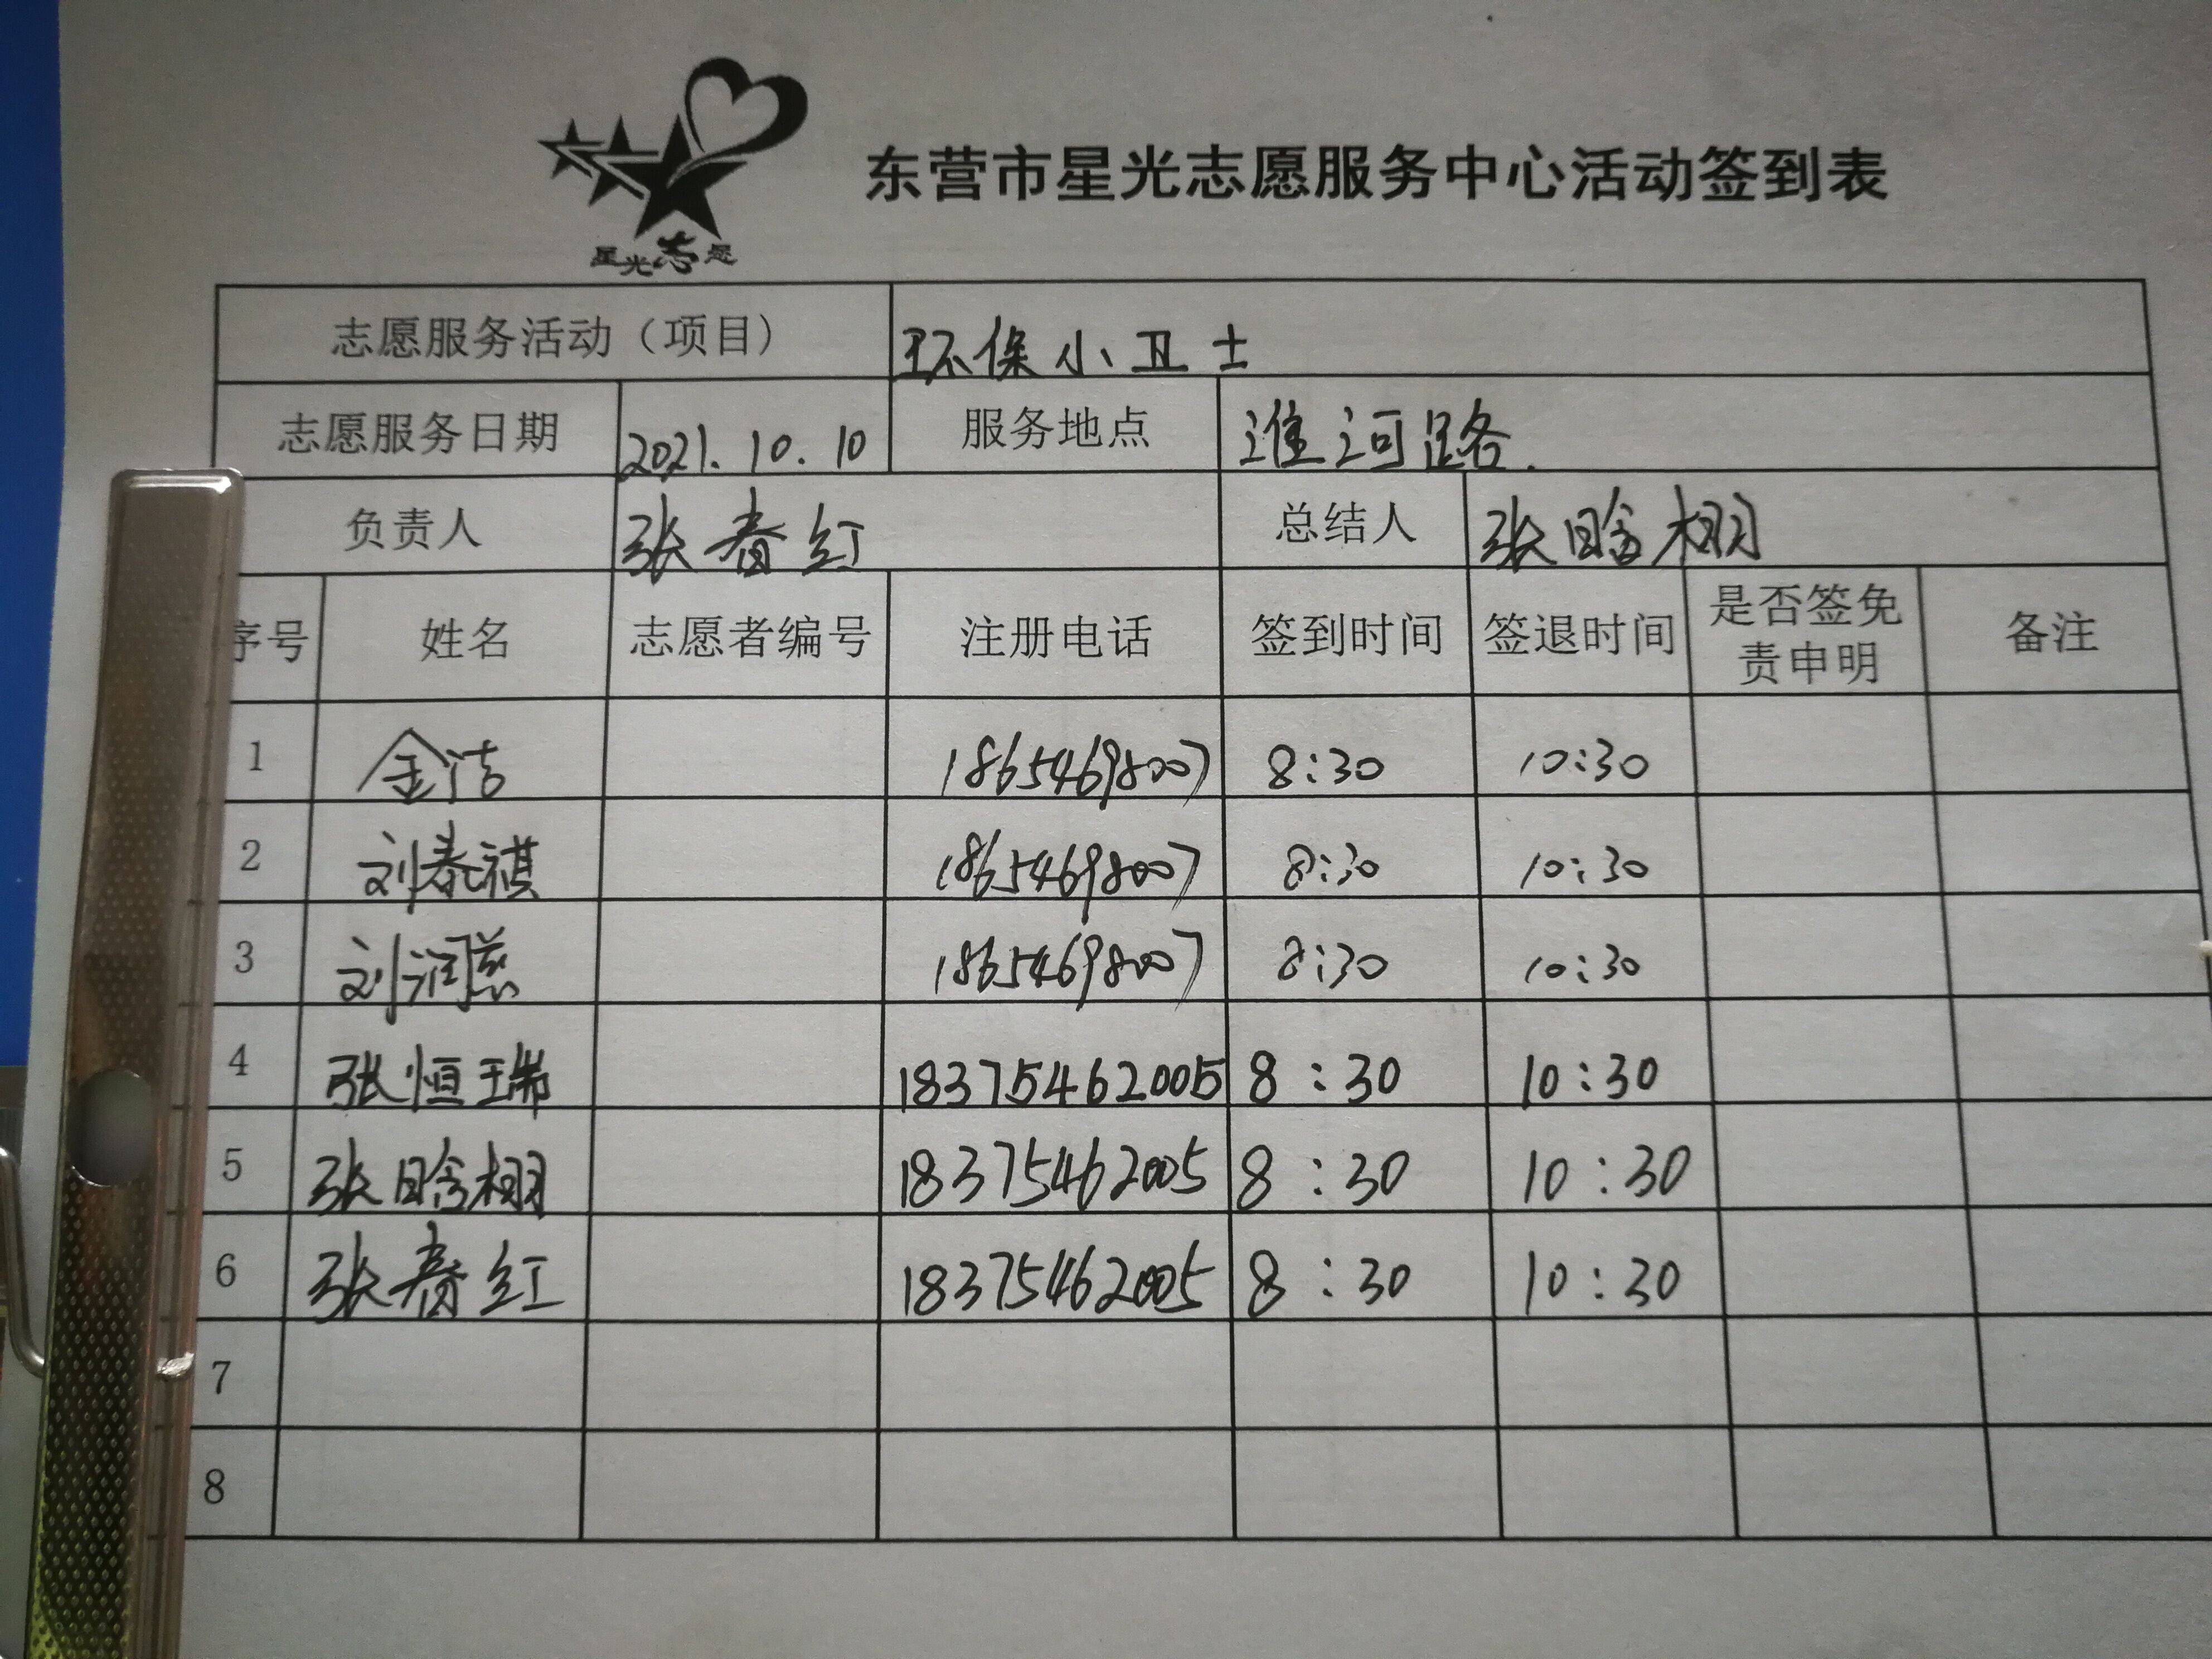 星光志愿
东营市星光志愿服务中心活动签到表
志愿服务活动（项目） 环保小卫士
志愿服务日期 2021.10.10 服务地点 淮河路.
负责人 张春红 总结人 张晗栩
序号 姓名 志愿者编号 注册电话 签到时间 签退时间 是否签免责申明 备注
1 金洁 18654698007 8:30 10:30
2 刘泰祺 18654698007 8:30 10:30
3 刘润慈 18654698007 8:30 10:30
4 张恒瑞 18375462005 8:30 10:30
5 张晗栩 18375462005 8:30 10:30
6 张春红 18375462005 8:30 10:30
7
8